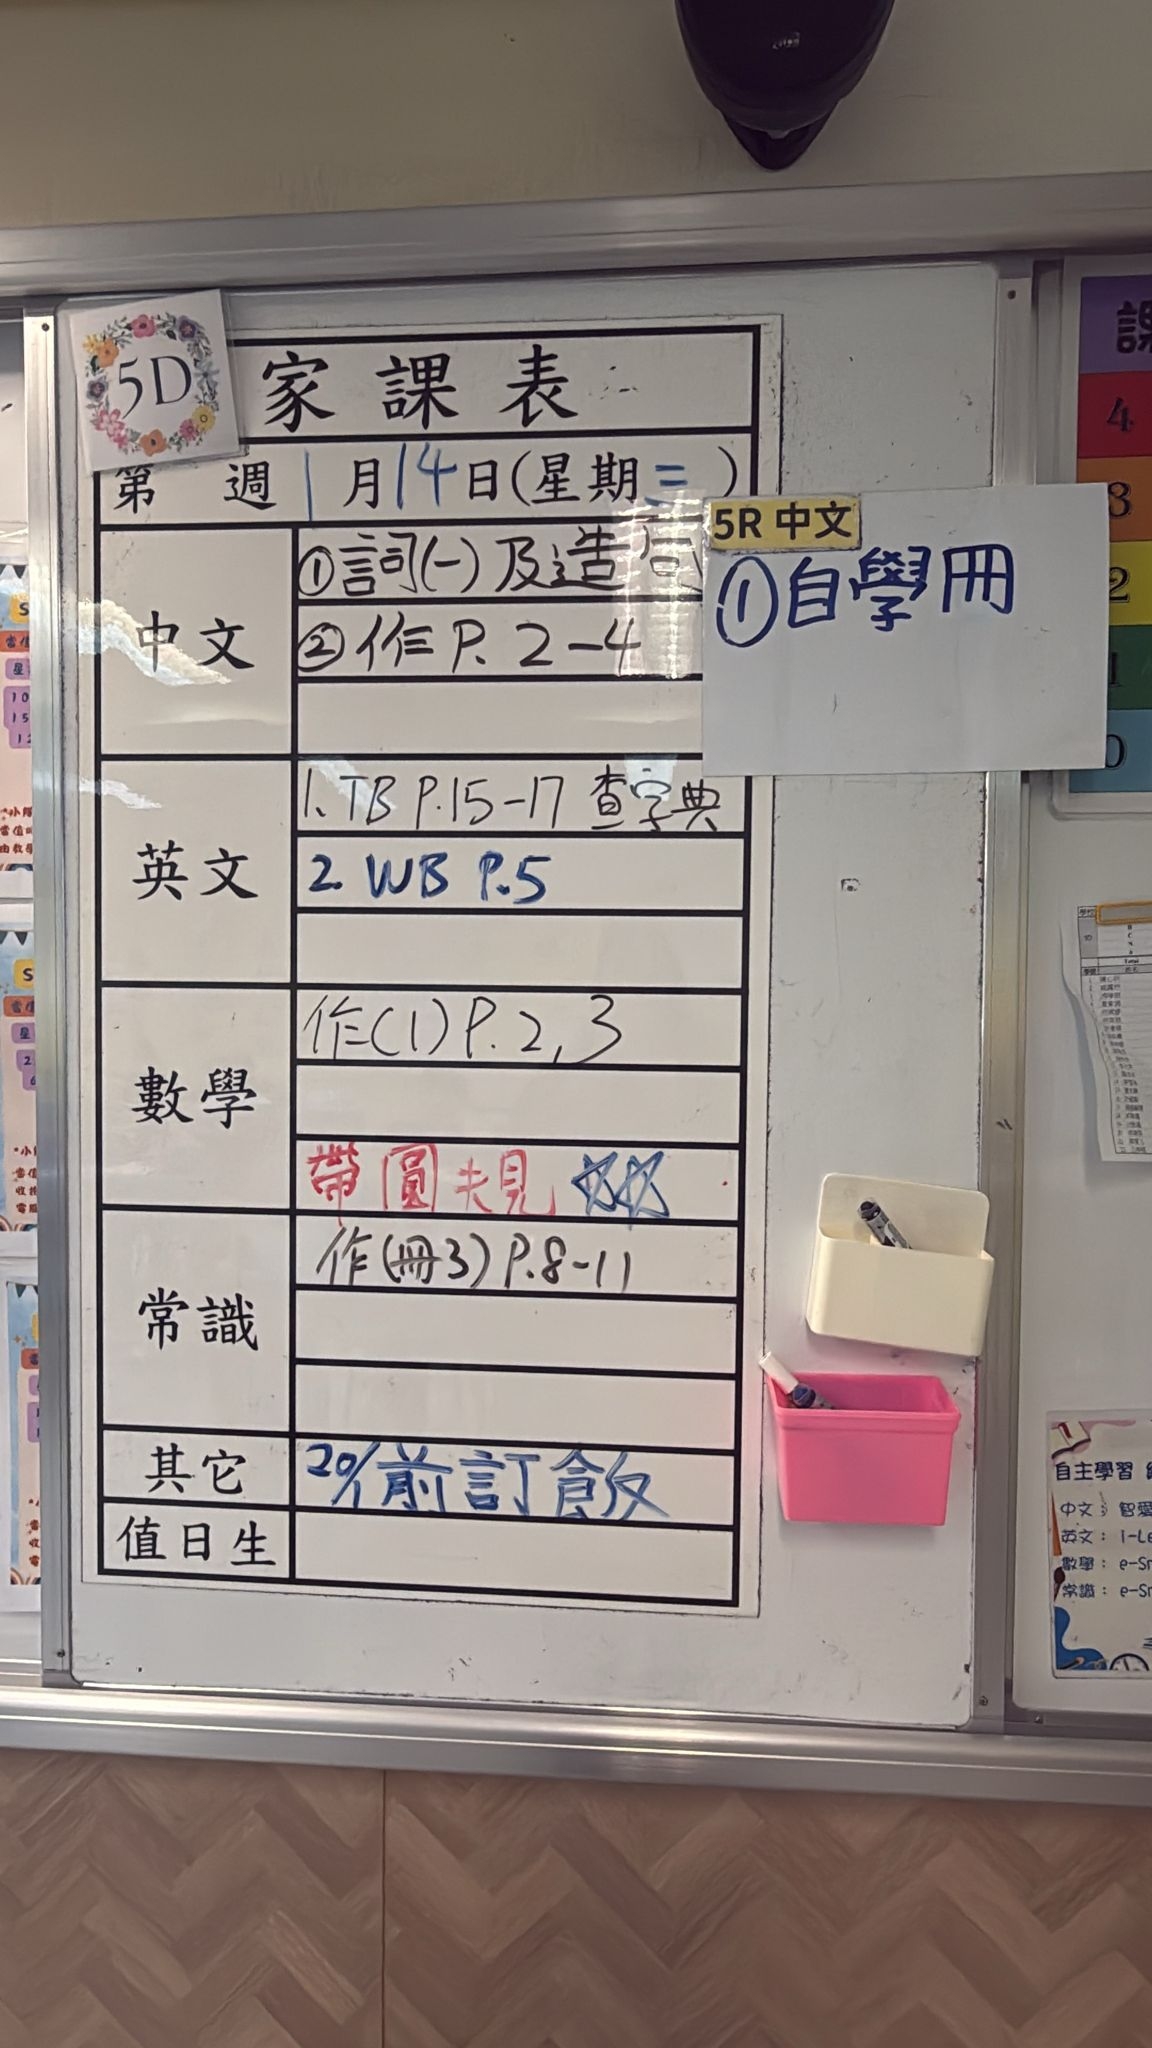 5D
家課表
第 週 1月14日(星期三)
中文
①詞(一)及造句
②作 P. 2-4
5R 中文
①自學冊
英文
1. TB P.15-17 查字典
2. WB P.5
數學
作(1) P. 2, 3
帶圓規
常識
作(冊3) P.8-11
其它
20/1前訂飯
值日生
課
4
8
2
1
0
自主學習
中文:
英文:
數學:
常識:
Total